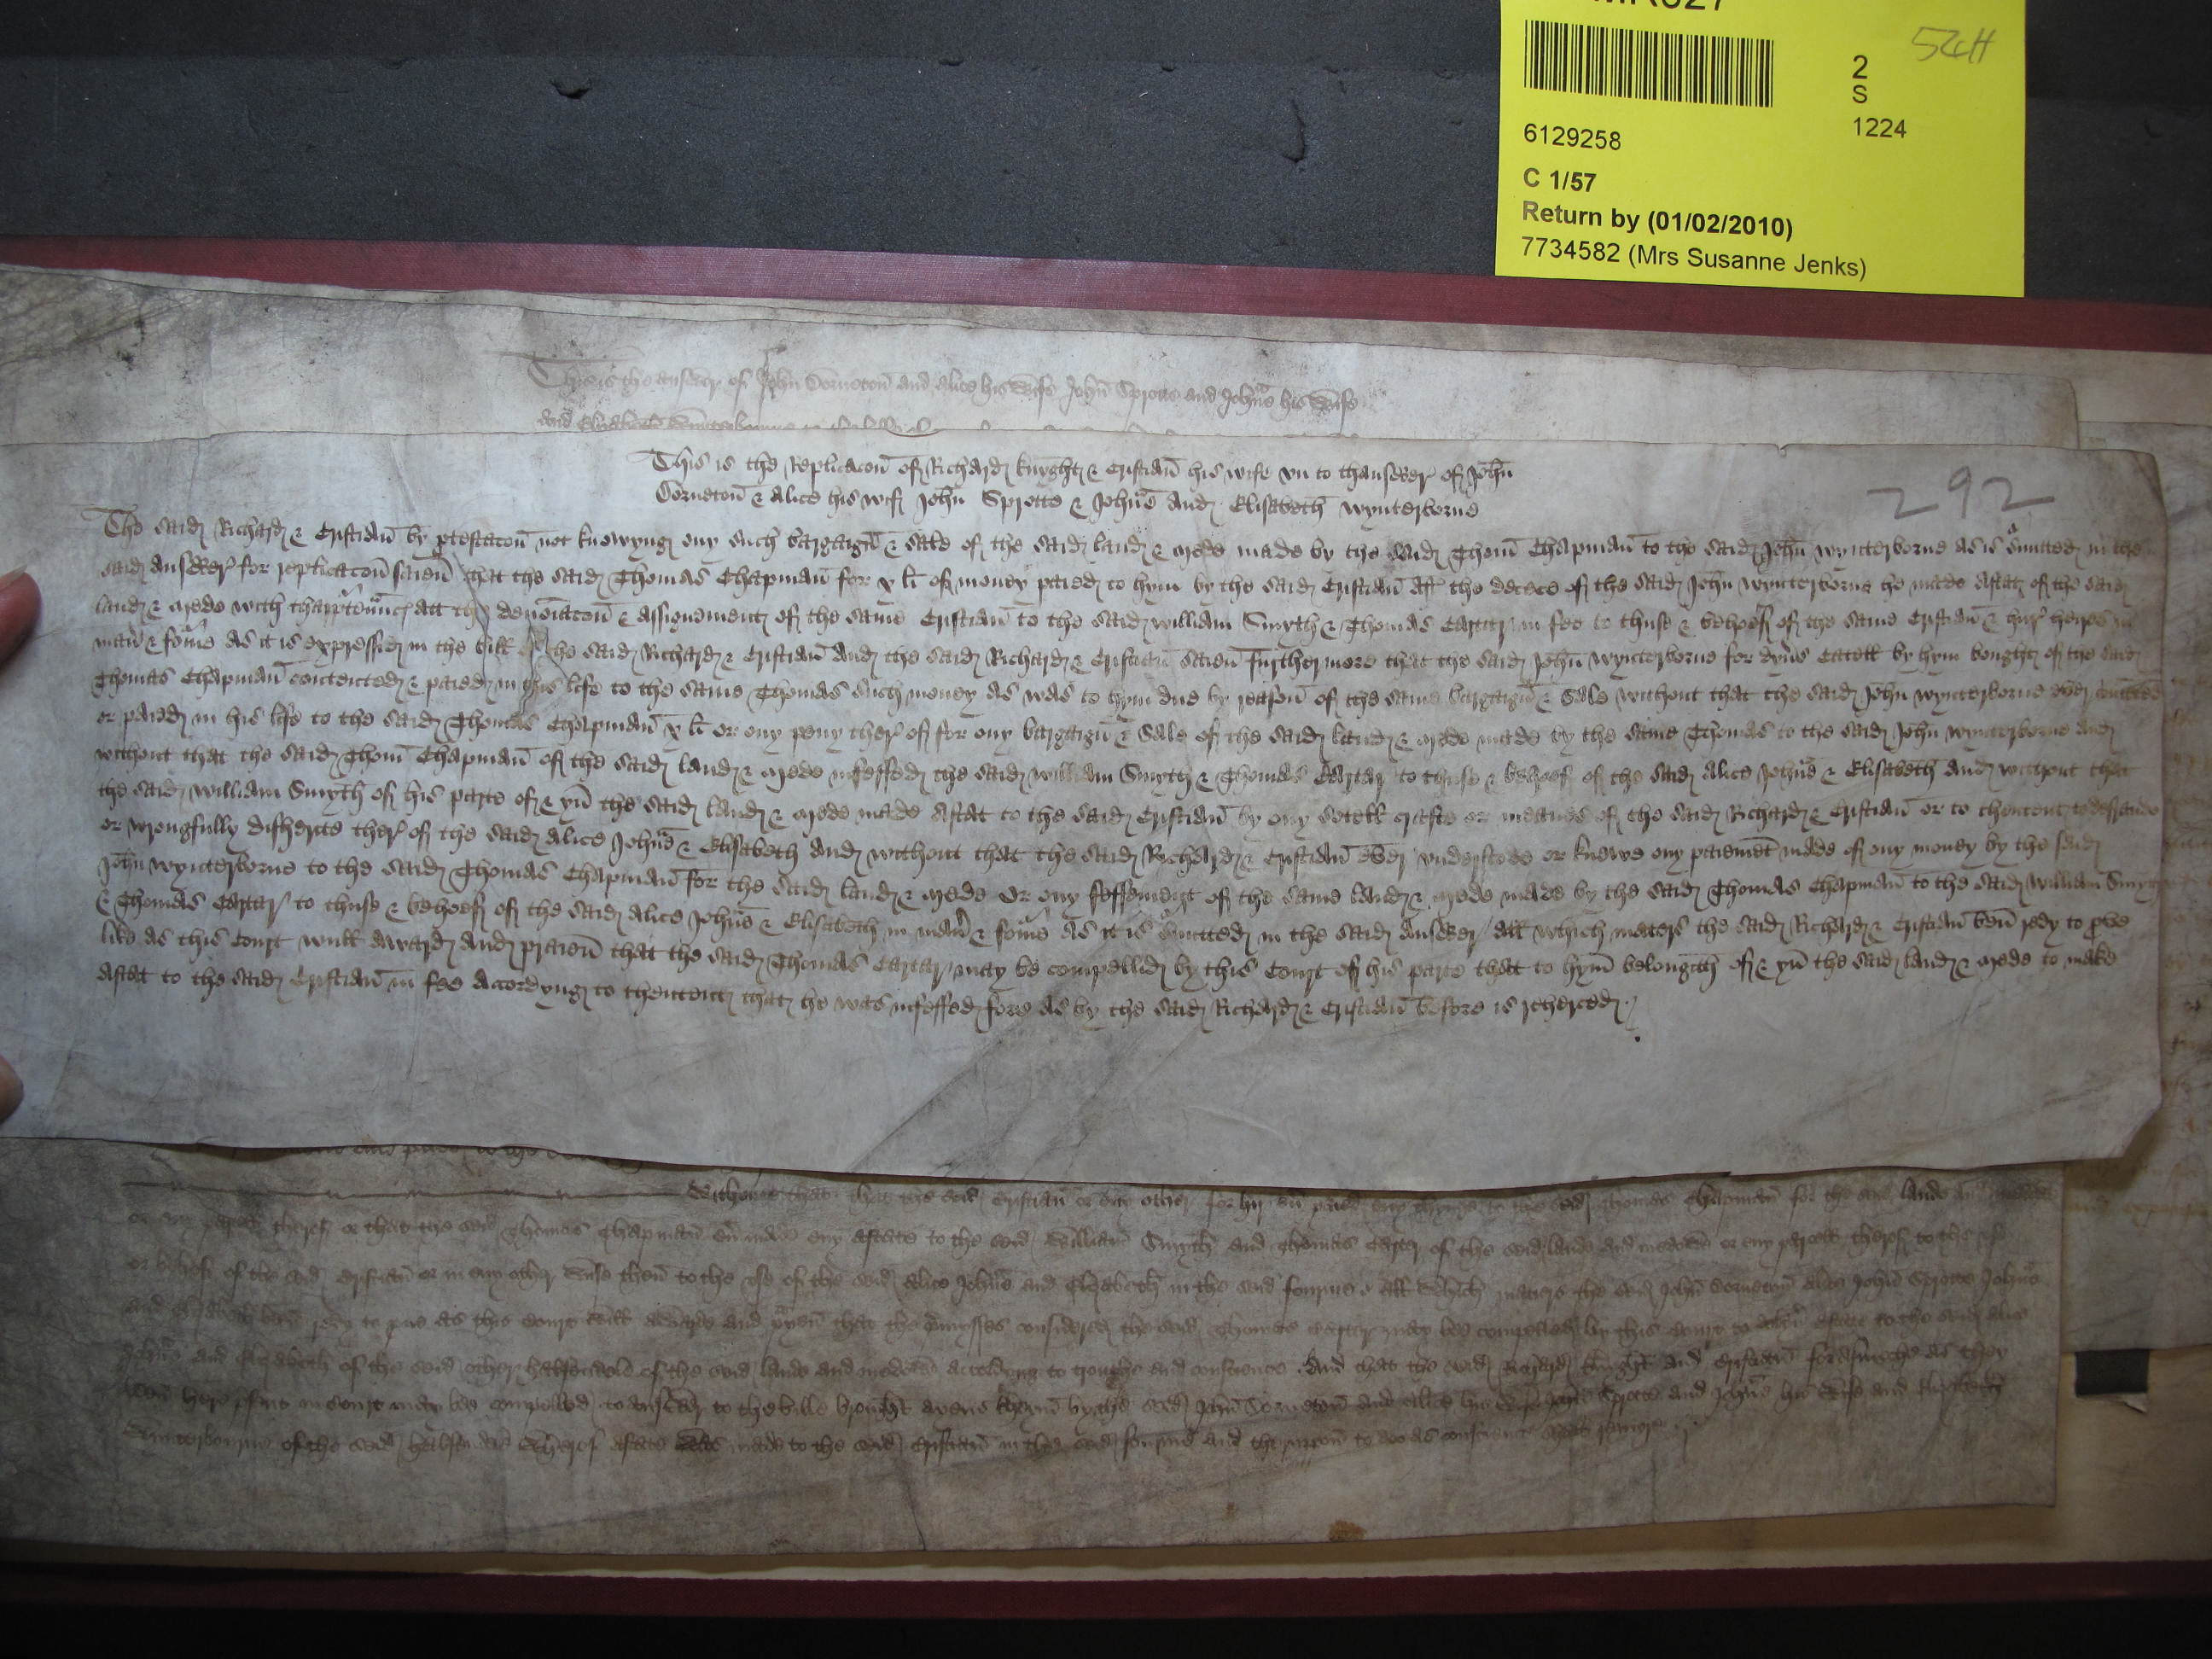 MR527
54H
2
S
1224
6129258
C 1/57
Return by (01/02/2010)
7734582 (Mrs Susanne Jenks)
This is the answer of John and Alice his wife John Sprotte and Johne his wife
and
292
This is the Replicacon of Richard knyght & Cristian his wife vn to thanswer of John
& Alice his wif John Sprotte & Johne and Elisabeth wynterborne
The said Richard & Cristian by protestacon not knowyng eny such bargayn & sale of the said land & mede made by the said Thom Chapman to the said John wynterborne as is surmitted in the
said answer for replicacon saien that the said Thomas Chapman for v li of money paied to hym by the said Cristian aft the decece of the said John wynterborne he made astat of the said
land & mede with att the & assignement of the same Cristian to the said william Smyth & Thomas Cartar in fee to thuse & behoef of the same Cristian & hur heires in
man & forme as it is expressed in the bill of the said Richard & Cristian and the said Richard & Cristian saien furthermore that the said John wynterborne for dyus Catell by hym bought of the said
Thomas Chapman contented & paied in his life to the same Thomas such money as was to hym due by reason of the same bargayn & sale without that the said John wynterborne ever contented
or paied in his life to the said Thomas Chapman v li or eny peny ther of for eny bargayn & Sale of the said land & mede made by the same Thomas to the said John wynterborne and
without that the said Thom Chapman of the said land & mede infeffed the said william Smyth & Thomas Cartar to thuse & behoef of the said Alice Johne & Elisabeth and without that
the said william Smyth of his parte of & yn the said land & mede made astat to the said Cristian by eny sotell crafte or meanes of the said Richard & Cristian or to thentent to
or wrongfully disherite ther of the said Alice Johne & Elisabeth and without that the said Richard & Cristian ever understode or knewe eny paiement made of eny money by the said
John wynterborne to the said Thomas Chapman for the said land & mede Or eny feffement of the same land & mede made by the said Thomas Chapman to the said william Smyth
& Thomas Cartar to thuse & behoef of the said Alice Johne & Elisabeth in man & forme As it is surmitted in the said Answer / all which maters the said Richard & Cristian ben redy to prove
like as this Court wull award and praien that the said Thomas Cartar may be compellid by this Court of his parte that to hym belongith of & yn the said land & mede to make
astat to the said Cristian in fee accordyng to thentent that he was infeffed fore as by the said Richard & Cristian before is reherced
Without that that the said Cristian or eny other for hir paied eny thyng to the said Thomas Chapman for the said lande and
or eny parcell therof or that the said Thomas Chapman made eny astate to the said William Smyth and Thomas Carter of the said lande and or eny parcell therof to the use
or behoef of the said Cristian or in eny other wise then to the use of the said Alice Johne and Elizabeth in the said fourme all which maters the said John Alice John Sprotte Johne
and Elizabeth ben redy to prove as this court will awarde and prayen that the premisses considered the said Thomas Carter may be compelled by this court to make astate to the said Alice
Johne and Elizabeth of the said other of the said lande and accordyng to trouthe and conscience And that the said Richard knyght and Cristian forasmoche as they
ben here present in court may be compelled to answer to the bille brought ayens theym by the said John and Alice his wife John Sprotte and Johne his wife and Elizabeth
Wynterbourne of the said wherof astate was made to the said Cristian in the said fourme and theruppon to do as conscience